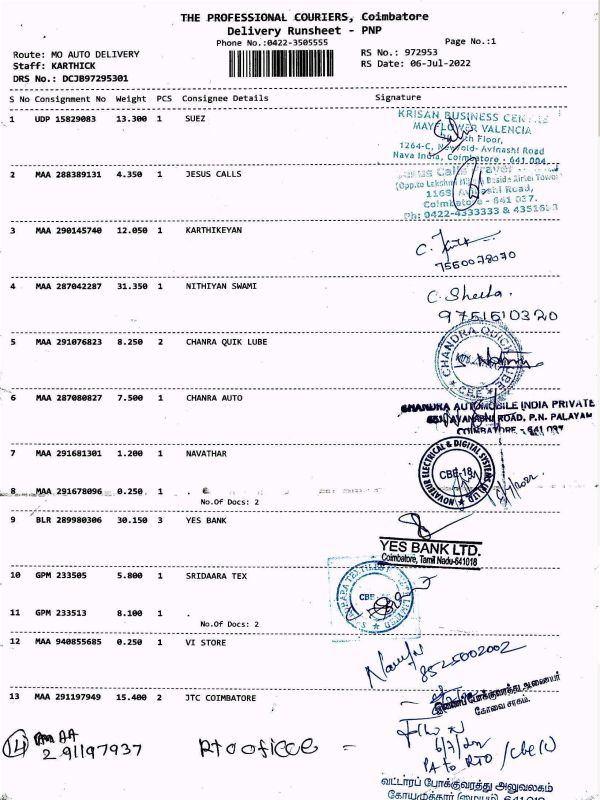 THE PROFESSIONAL COURIERS, Coimbatore
Delivery Runsheet - PNP
Phone No.:0422-3505555
Page No.:1
Route: MO AUTO DELIVERY
RS No.: 972953
Staff: KARTHICK
RS Date: 06-Jul-2022
DRS No.: DCJB97295301
S No Consignment No Weight PCS Consignee Details Signature
1 UDP 15829083 13.300 1 SUEZ
KRISAN BUSINESS
MAYFLOWER VALENCIA
Floor,
1264-C, Avinashi Road
Nava India, Coimbatore - 641 004
2 MAA 288389131 4.350 1 JESUS CALLS
Calls
(Opp.to Lakshmi Beside Airtel Tower
Avinashi Road,
Coimbatore - 641 037.
Ph: 0422-4333333 &
3 MAA 290145740 12.050 1 KARTHIKEYAN
7550078070
4 MAA 287042287 31.350 1 NITHIYAN SWAMI
C. Sheela.
9751510320
5 MAA 291076823 8.250 2 CHANRA QUIK LUBE
CHANDRA QUICK LUBE
CBE
6 MAA 287080827 7.500 1 CHANRA AUTO
CHANDRA AUTOMOBILE INDIA PRIVATE
ROAD, P.N. PALAYAM
COIMBATORE - 641 037
7 MAA 291681301 1.200 1 NAVATHAR
NOVATEUR ELECTRICAL & DIGITAL SYSTEMS (P) LTD
CBE-18
8 MAA 291678096 0.250 1 .
No.Of Docs: 2
9 BLR 289980306 30.150 3 YES BANK
YES BANK LTD.
Coimbatore, Tamil Nadu-641018
10 GPM 233505 5.800 1 SRIDAARA TEX
CBE
11 GPM 233513 8.100 1 .
No.Of Docs: 2
12 MAA 940855685 0.250 1 VI STORE
8525002002
13 MAA 291197949 15.400 2 JTC COIMBATORE
போக்குவரத்து ஆணையர்
கோவை சரகம்.
14 MAA
291197937 RTO office -
PA to RTO
வட்டாரப் போக்குவரத்து அலுவலகம்